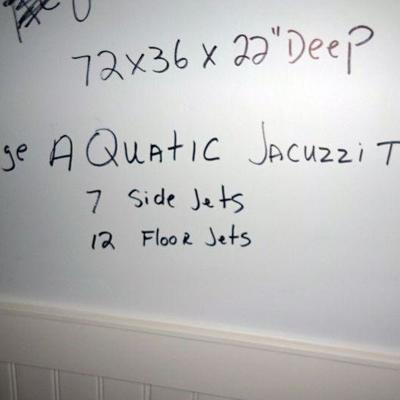 72x36 x 22" Deep
ge AQuatic Jacuzzi T
7 Side Jets
12 Floor Jets